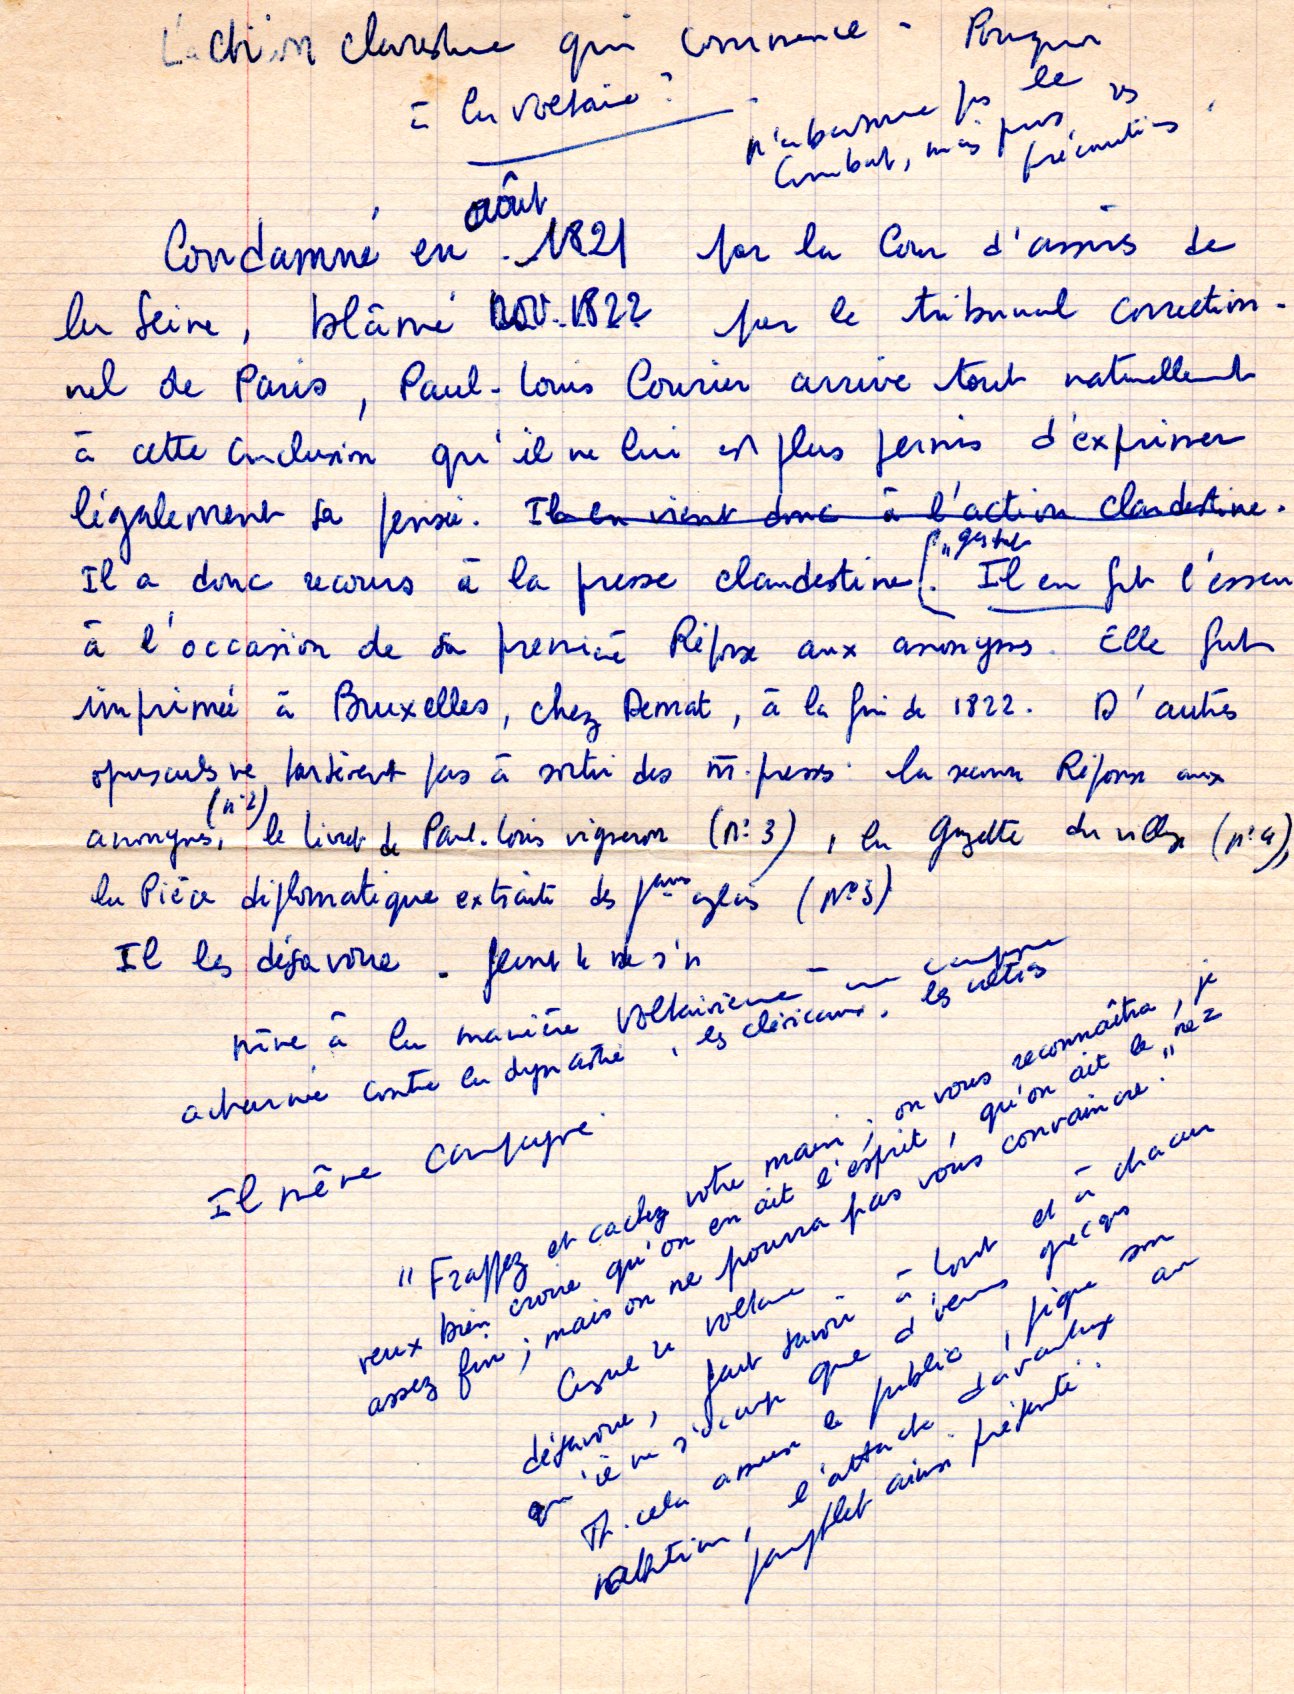 L'action clandestine qui commence - Pourquoi
à la Voltaire ?
n'abandonne pas le
combat, mais prend ses
précautions.
août
Condamné en 1821 par la Cour d'assises de
la Seine, blâmé nov. 1822 par le tribunal correction-
nel de Paris, Paul-Louis Courier arrive tout naturellement
à cette conclusion qu'il ne lui est plus permis d'exprimer
légalement sa pensée. Il en vient donc à l'action clandestine.
Il a donc recours à la presse clandestine. Il en fit l'essai
à l'occasion de sa première Réponse aux anonymes. Elle fut
imprimée à Bruxelles, chez Demat, à la fin de 1822. D'autres
opuscules ne tardèrent pas à sortir des m. presses : la seconde Réponse aux
anonymes, (n° 2) le Livret de Paul-Louis vigneron (n° 3), la Gazette du village (n° 4),
la Pièce diplomatique extraite des jaux anglais (n° 5)
Il les désavoue. feint de ne s'n
mène à la manière voltairienne une campagne
acharnée contre la dynastie, les cléricaux, les ultras
Il mène campagne.
"Frappez et cachez votre main ; on vous reconnaîtra, je
veux bien croire qu'on en ait l'esprit, qu'on ait le nez
assez fin ; mais on ne pourra pas vous convaincre."
Comme Voltaire
désavoue, fait savoir à tout et à chacun
qu'il ne s'occupe que d'
cela amuse le public, pique son
attention, l'attache davantage au
pamphlet ainsi présenté.